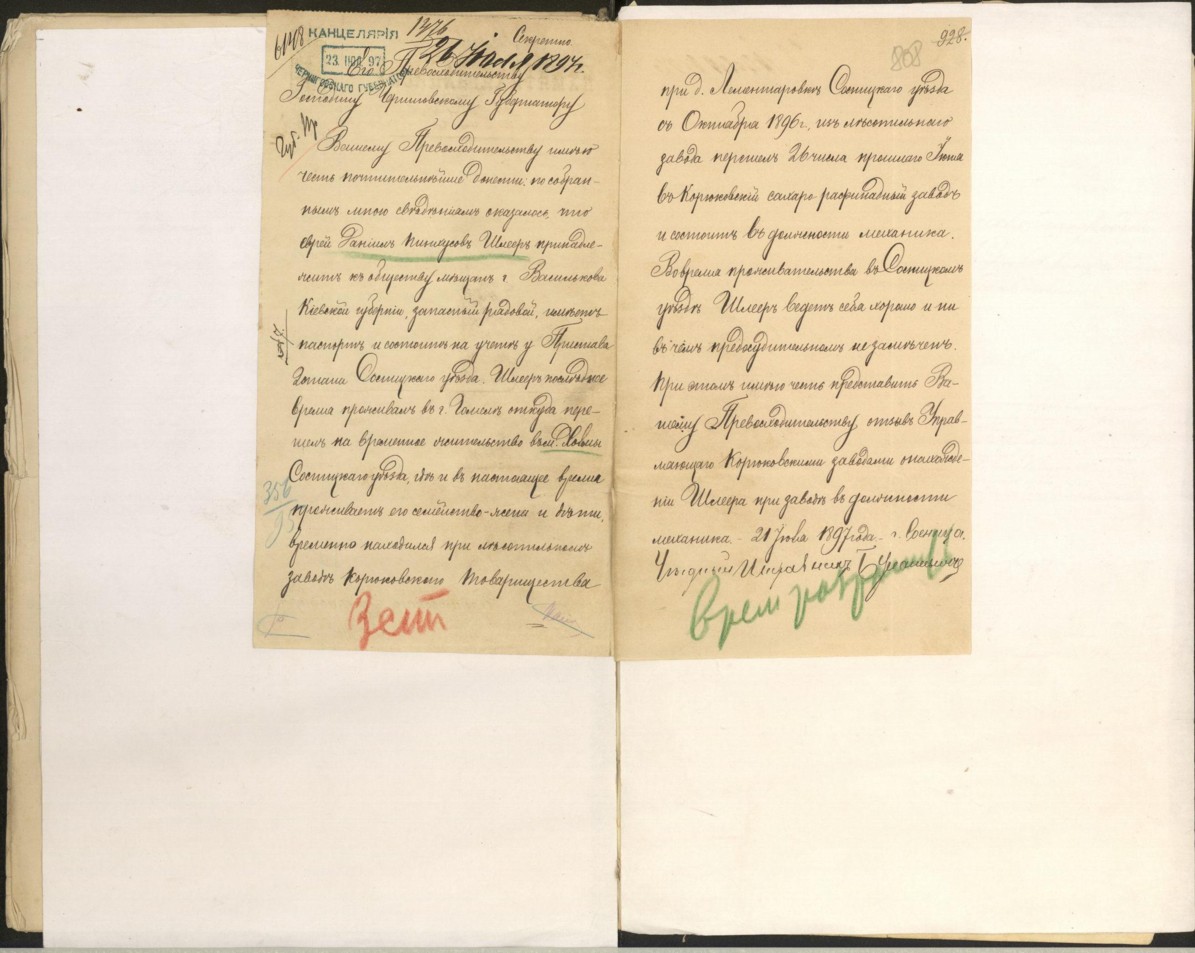 6148
КАНЦЕЛЯРІЯ
1476
Секретно.
23 97
26 Іюля 1897 г.
ЧЕРНИГОВСКАГО ГУБЕРНАТОРА
Его Превосходительству
Господину Черниговскому Губернатору
Вашему Превосходительству имѣю
честь почтительнѣйше донести: по собран-
нымъ мною свѣдѣніямъ оказалось, что
еврей Даніилъ Пинхусовъ Шлееръ принадле-
житъ къ обществу мѣщанъ г. Василькова
Кіевской губерніи, запасный рядовой, имѣетъ
паспортъ и состоитъ на учетѣ у Пристава
2 стана Сосницкаго уѣзда. Шлееръ послѣднее
время проживалъ въ г. Гомелѣ откуда пере-
шелъ на временное жительство въ м. Холмы
Сосницкаго уѣзда, гдѣ и въ настоящее время
проживаетъ его семейство-жена и дѣти.
временно находился при лѣсопильномъ
заводѣ Корюковскаго Товарищества
356
95
3 ст
928.
808
при д. Сосницкаго уѣзда
съ Октября 1896 г., изъ лѣсопильнаго
завода перешелъ 26 числа прошлаго Іюня
въ Корюковскій сахаро рафинадный заводъ
и состоитъ въ должности механика.
Во время проживательства въ Сосницкомъ
уѣздѣ Шлееръ ведетъ себя хорошо и ни
въ чемъ предосудительномъ не замѣченъ.
При этомъ имѣю честь представить Ва-
шему Превосходительству отзывъ Управ-
ляющаго Корюковскими заводами о нахожде-
ніи Шлеера при заводѣ въ должности
механика. - 21 Іюля 1897 года. - г. Сосница.
Уѣздный Исправникъ
Врем